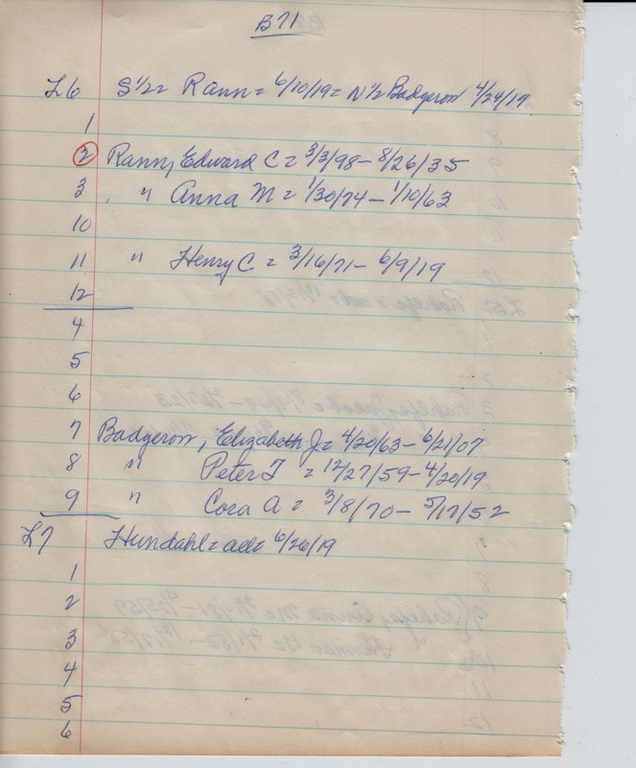 B71
L6 S½ = Rann = 6/10/19 = N½ Badgerow 4/24/19
1
2 Rann, Edward C = 3/3/98 - 8/26/35
3 " Anna M = 1/30/74 - 1/10/63
10
11 " Henry C = 3/16/71 - 6/9/19
12
4
5
6
7 Badgerow, Elizabeth J = 4/20/63 - 6/21/07
8 " Peter T = 12/27/59 - 4/20/19
9 " Cora A = 3/8/70 - 5/17/52
L7 Hundahl = ad = 6/26/19
1
2
3
4
5
6